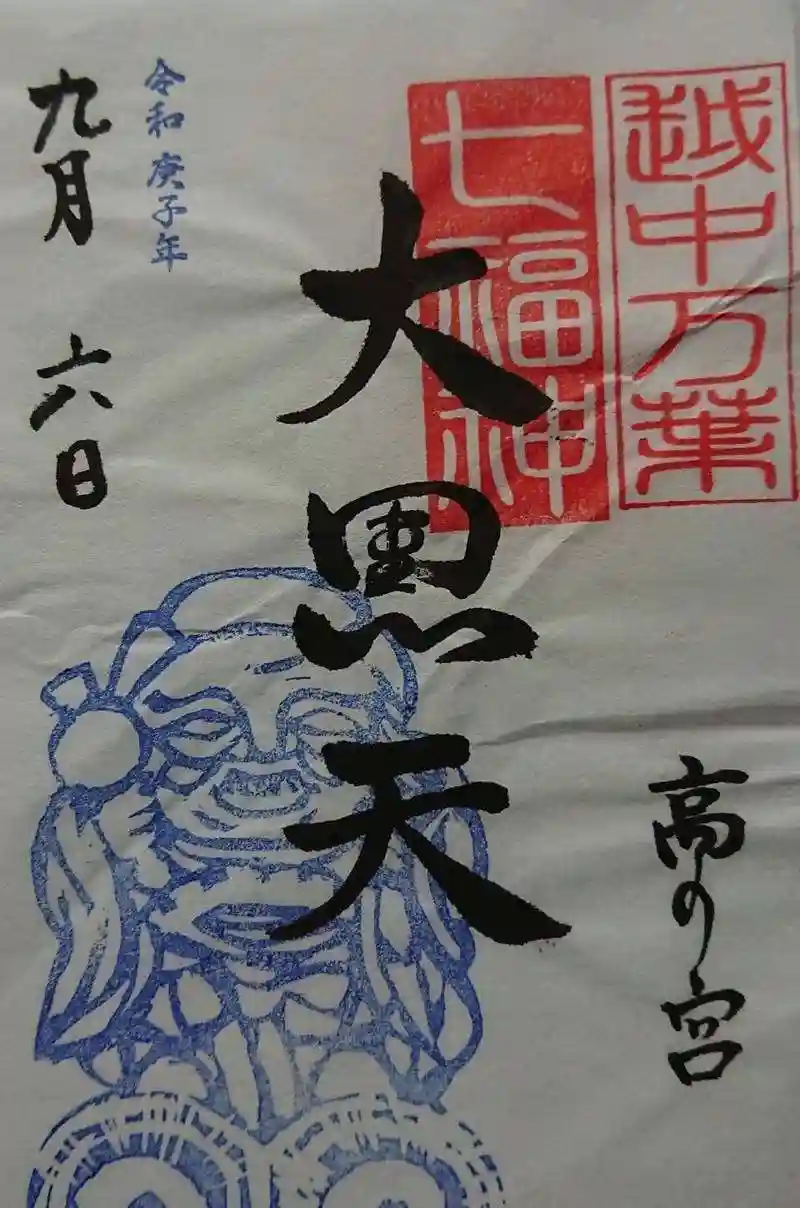 越中万葉
七福神
高の宮
大黒天
令和庚子年
九月六日